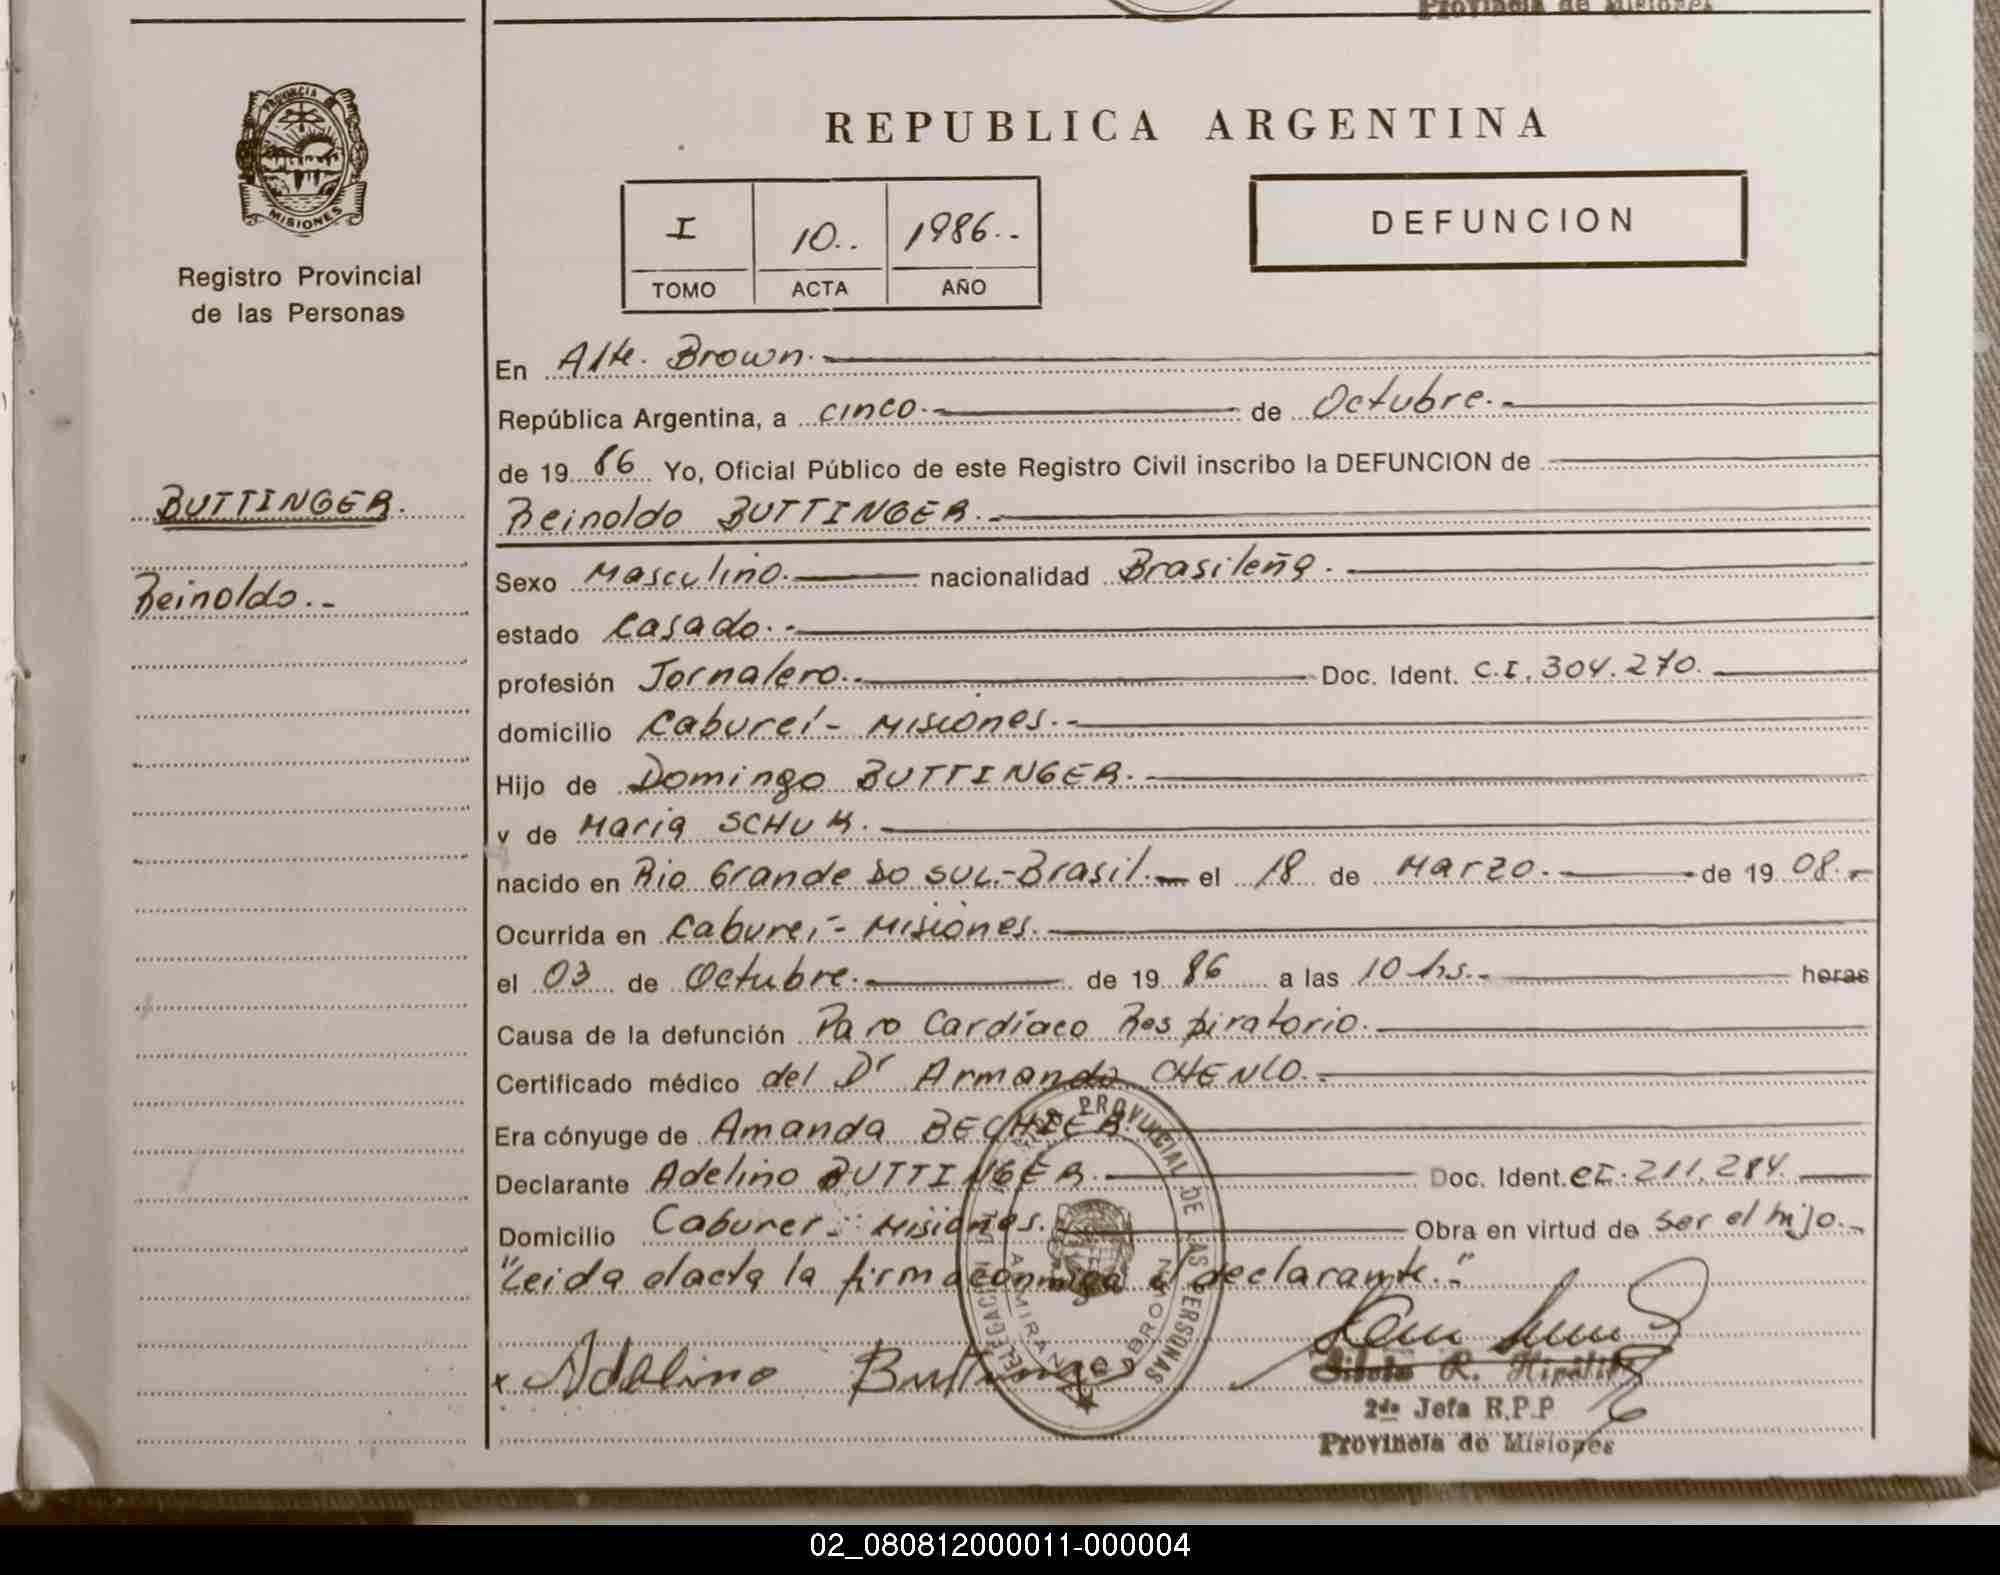 Provincia de Misiones
PROVINCIA DE
MISIONES
Registro Provincial
de las Personas
BUTTINGER.
Reinoldo.-
REPUBLICA ARGENTINA
I 10.. 1986.-
TOMO ACTA AÑO
DEFUNCION
En Alte. Brown.
República Argentina, a cinco.- de Octubre.-
de 19 86 Yo, Oficial Público de este Registro Civil inscribo la DEFUNCION de
Reinoldo BUTTINGER.-
Sexo Masculino. nacionalidad Brasileña.
estado Casado.-
profesión Jornalero.- Doc. Ident. C.I. 304.270.
domicilio Cabureí- Misiones.-
Hijo de Domingo BUTTINGER.-
y de Maria SCHUR.
nacido en Rio Grande Do SUL.-Brasil.- el 18 de Marzo. de 19 08.-
Ocurrida en Cabureí- Misiones.
el 03 de Octubre. de 19 86 a las 10 hs.- horas
Causa de la defunción Paro Cardíaco Respiratorio.
Certificado médico del Dr Armando CHENLO.-
Era cónyuge de Amanda BECHIER.
Declarante Adelino BUTTINGER. Doc. Ident. CI. 211.284.
Domicilio Cabureí- Misiones. Obra en virtud de ser el hijo.-
"Leida elacta la firma conmigo el declarante."
x Adelino Buttinger
REGISTRO PROVINCIAL DE LAS PERSONAS
DELEGACION
ALMIRANTE BROWN
R. Hipólit
2da Jefa R.P.P
Provincia de Misiones
02_080812000011-000004